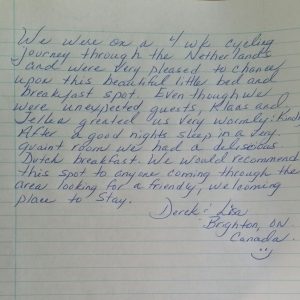 We were on a 4 wk cycling
journey through the Netherlands
and were very pleased to chance
upon this beautiful little bed and
breakfast spot. Even though we
were unexpected guests, Klaas and
greated us very warmly & Kindly
After a good nights sleep in a very
quaint room we had a delicious
Dutch breakfast. We would recommend
this spot to anyone coming through the
area looking for a friendly, welcoming
place to stay.
Derek & Lisa
Brighton, ON
Canada